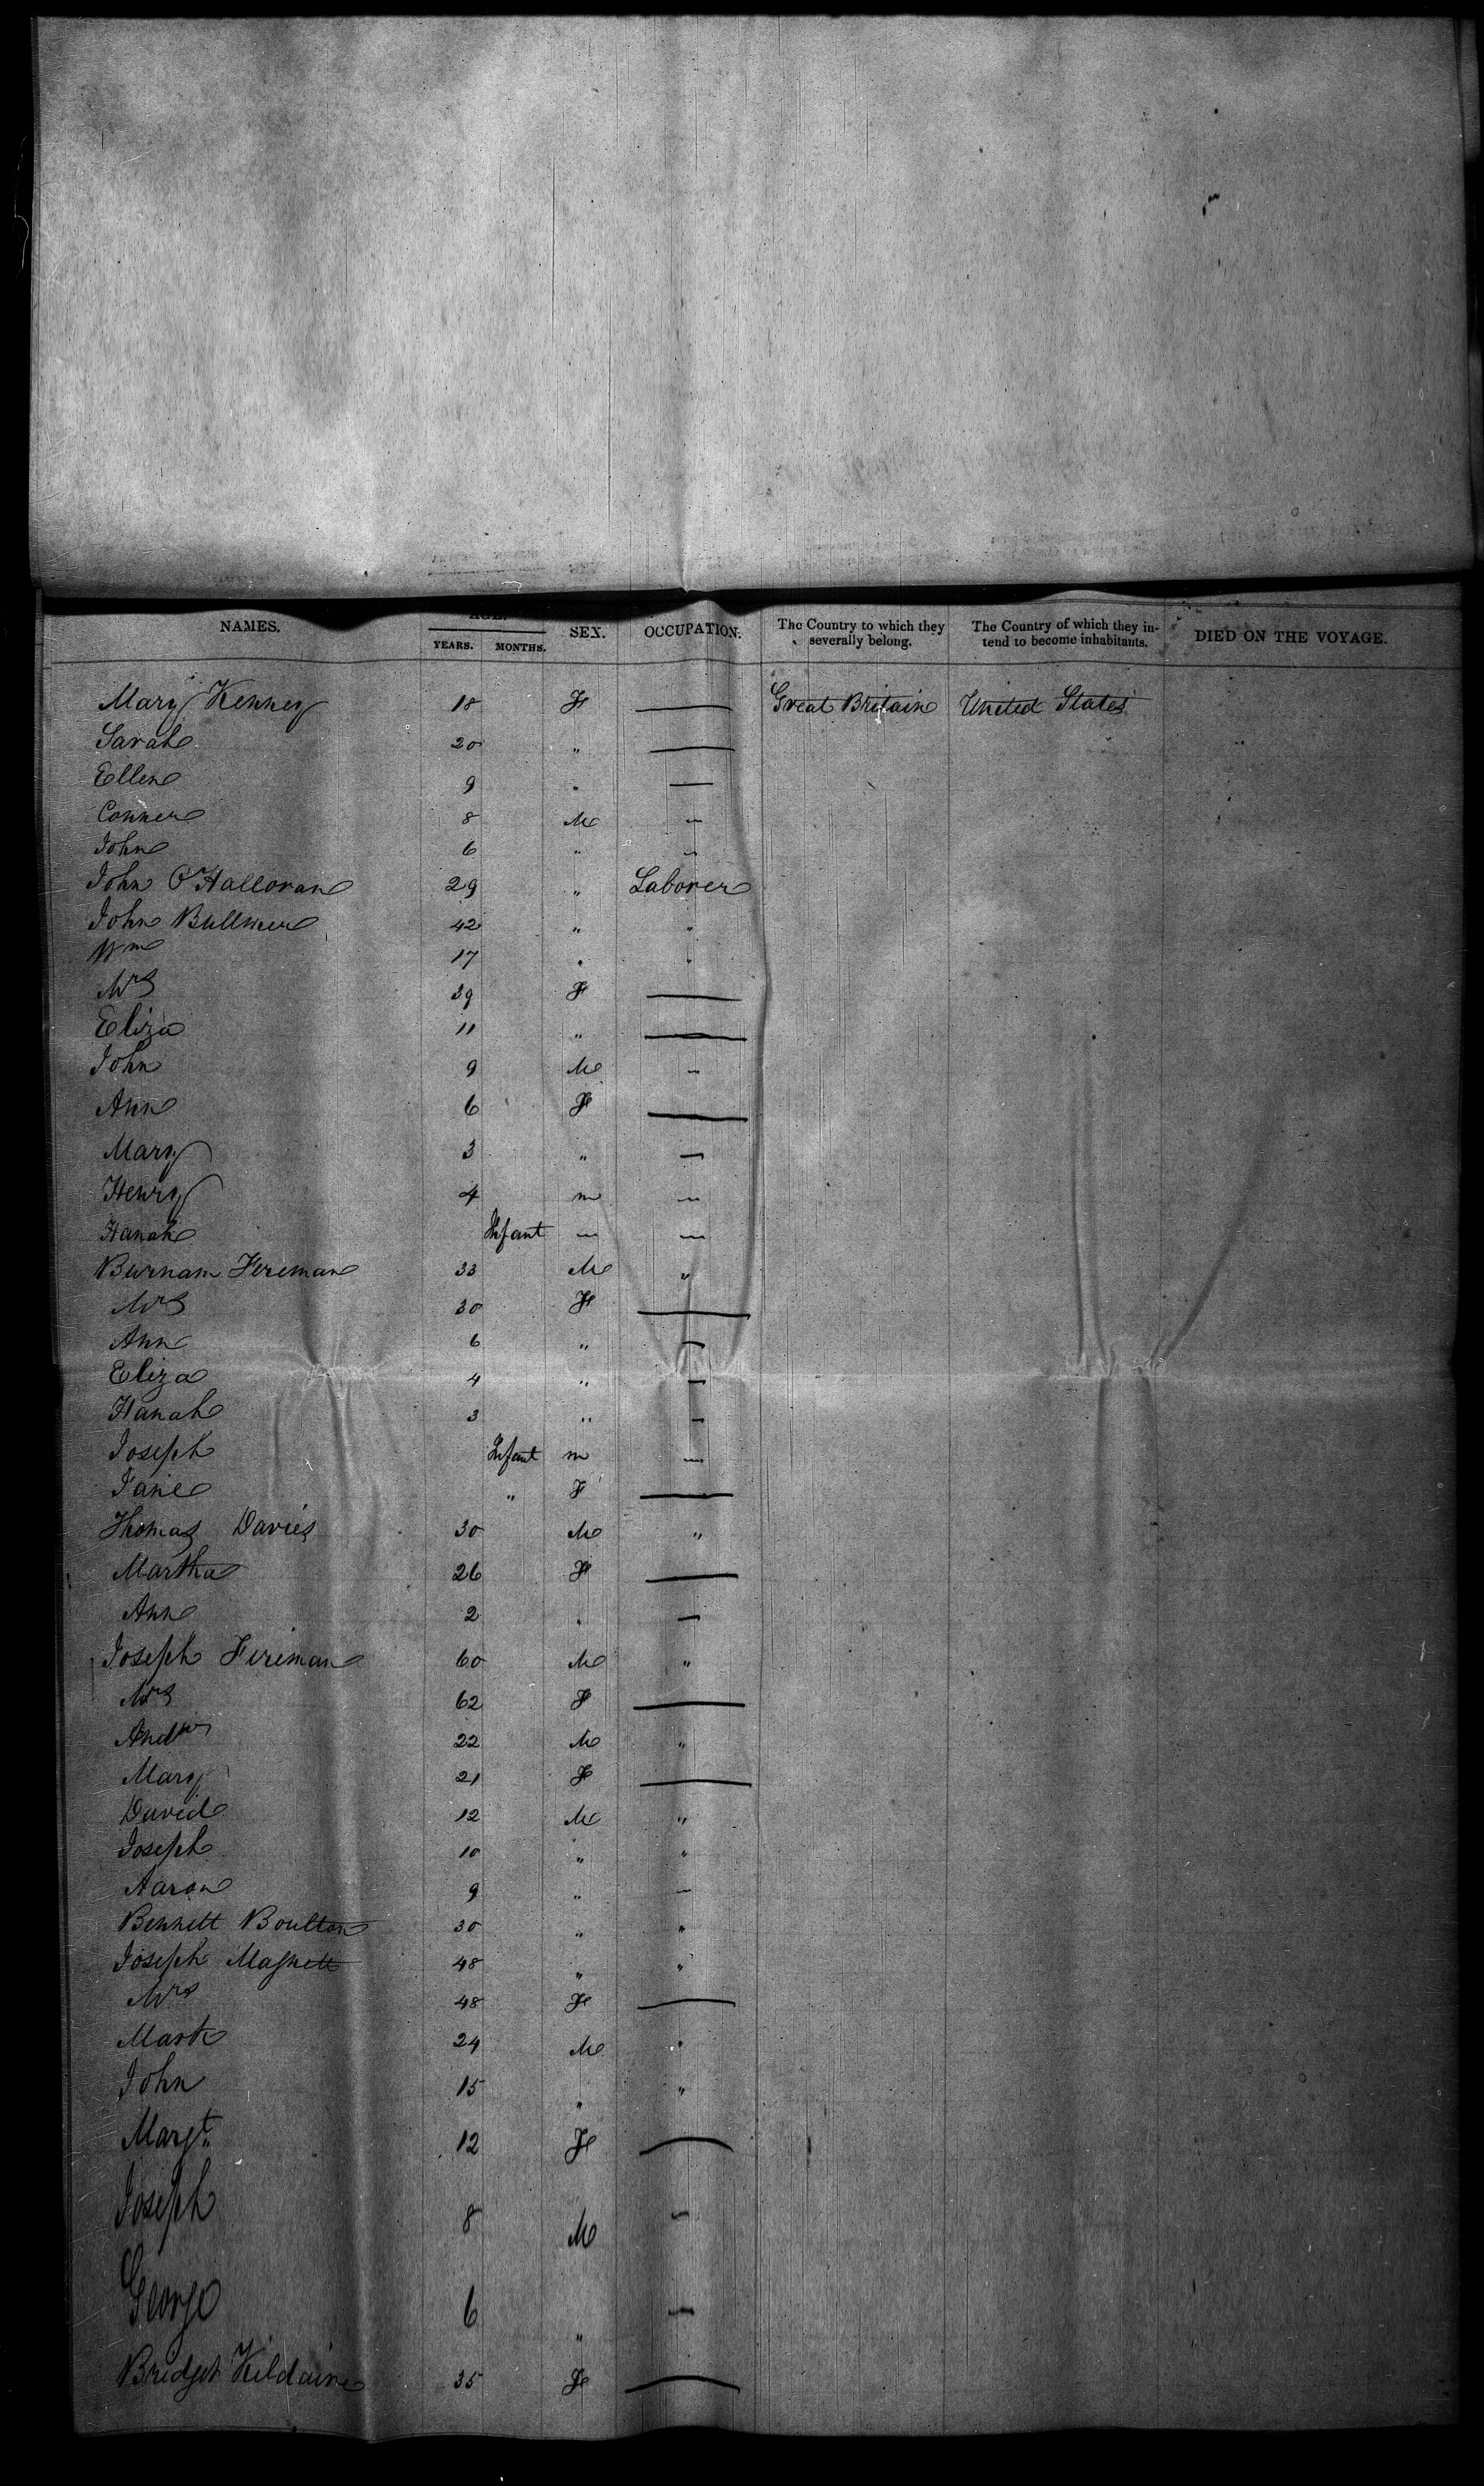 NAMES. AGE. YEARS. MONTHS. SEX. OCCUPATION. The Country to which they severally belong. The Country of which they intend to become inhabitants. DIED ON THE VOYAGE.
Mary Kenney 18 F — Great Britain United States
Sarah 20 " —
Ellen 9 " —
Conner 8 M —
John 6 " —
John O'Halloran 29 " Laborer
John Bullmer 42 " "
Wm 17 " "
Mrs 39 F —
Eliza 11 " —
John 9 M —
Ann 6 F —
Mary 3 " —
Henry 4 m —
Hanah Infant — —
Burnam Fireman 33 M "
Mrs 30 F —
Ann 6 " —
Eliza 4 " —
Hanah 3 " —
Joseph Infant m —
Jane " F —
Thomas Davies 30 M "
Martha 26 F —
Ann 2 " —
Joseph Fireman 60 M "
Mrs 62 F —
Andw 22 M "
Mary 21 F —
David 12 M "
Joseph 10 " "
Aaron 9 " —
Bennett Boulton 30 " "
Joseph 48 " "
Mrs 48 F —
Mark 24 M "
John 15 " "
Margt. 12 F —
Joseph 8 M —
George 6 " —
Bridget Kildaine 35 F —